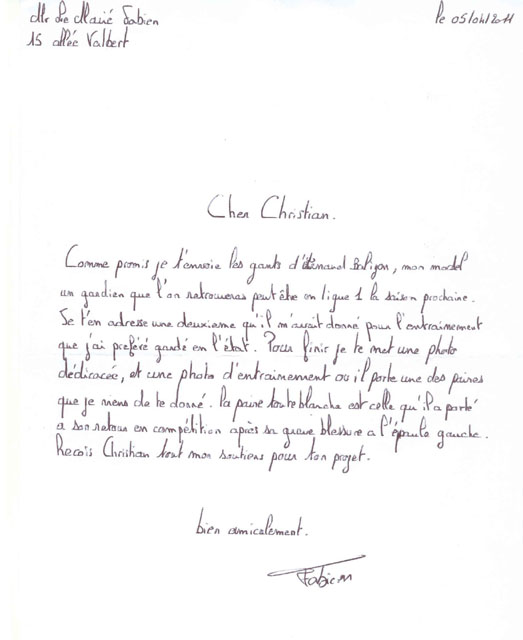 Mr Le Marié Fabien
le 05/04/2011
15 allée Valbert
Cher Christian.
Comme promis je t'envoie les gants d'                 , mon model
un gardien que l'on retrouveras peut être en ligue 1 la saison prochaine.
Je t'en adresse une deuxieme qu'il m'avait donné pour l'entrainement
que j'ai préféré gardé en l'état. Pour finir je te met une photo
dédicacée, et une photo d'entrainement ou il porte une des paires
que je viens de te donné. la paire toute blanche est celle qu'il a porté
a son retour en compétition après sa grave blessure a l'épaule gauche.
Recois Christian tout mon soutiens pour ton projet.
bien amicalement.
Fabien